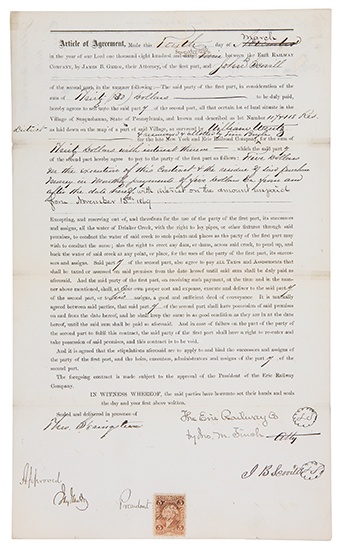 Article of Agreement, Made this Tenth day of March
in the year of our Lord one thousand eight hundred and sixty nine between the ERIE RAILWAY
COMPANY, by JAMES B. GREGG, their Attorney, of the first part, and
of the second part, in the manner following:—The said party of the first part, in consideration of the
sum of Thirty (30) Dollars to be duly paid,
hereby agrees to sell unto the said party of the second part, all that certain lot of land situate in the
Village of Susquehanna, State of Pennsylvania, and known and described as lot Number
as laid down on the map of a part of said Village, as surveyed by William Wentz
for the late New York and Erie Railroad Company, for the sum of
Thirty Dollars with interest thereon — which the said party
of the second part hereby agrees to pay to the party of the first part as follows: Five Dollars
on the execution of this Contract & the residue of said purchase
money in Monthly payments of five Dollars Ea from and
after the date hereof with interest on the amount unpaid
from November 15th 1869
Excepting, and reserving out of, and therefrom for the use of the party of the first part, its successors
and assigns, all the water of Drinker Creek, with the right to lay pipes, or other fixtures through said
premises, to conduct the water of said creek to such points and places as the party of the first part may
wish to conduct the same; also the right to erect any dam, or dams, across said creek, to pond up, and
back the water of said creek at any point, or place, for the uses of the party of the first part, its successors
and assigns. Said part y of the second part, also agrees to pay all TAXES and ASSESSMENTS that
shall be taxed or assessed on said premises from the date hereof until said sum shall be fully paid as
aforesaid. And the said party of the first part, on receiving such payment, at the time and in the manner
above mentioned, shall, at own proper cost and expense, execute and deliver to the said part y of
the second part, or to assigns, a good and sufficient deed of conveyance. It is mutually
agreed between said parties, that said part y of the second part shall have possession of said premises
on and from the date hereof, and he shall keep the same in as good condition as they are in at the date
hereof, until the said sum shall be paid as aforesaid. And in case of failure on the part of the party of
the second part to fulfil this contract, the said party of the first part shall have a right to re-enter and
take possession of said premises, and this contract is to be void.
And it is agreed that the stipulations aforesaid are to apply to and bind the successors and assigns of
the party of the first part, and the heirs, executors, administrators and assigns of the part y of the second
part.
The foregoing contract is made subject to the approval of the President of the Erie Railway
Company.
IN WITNESS WHEREOF, the said parties have hereunto set their hands and seals
the day and year first above written.
Sealed and delivered in presence of
The Erie Railway Co
by
Atty
Approved
President